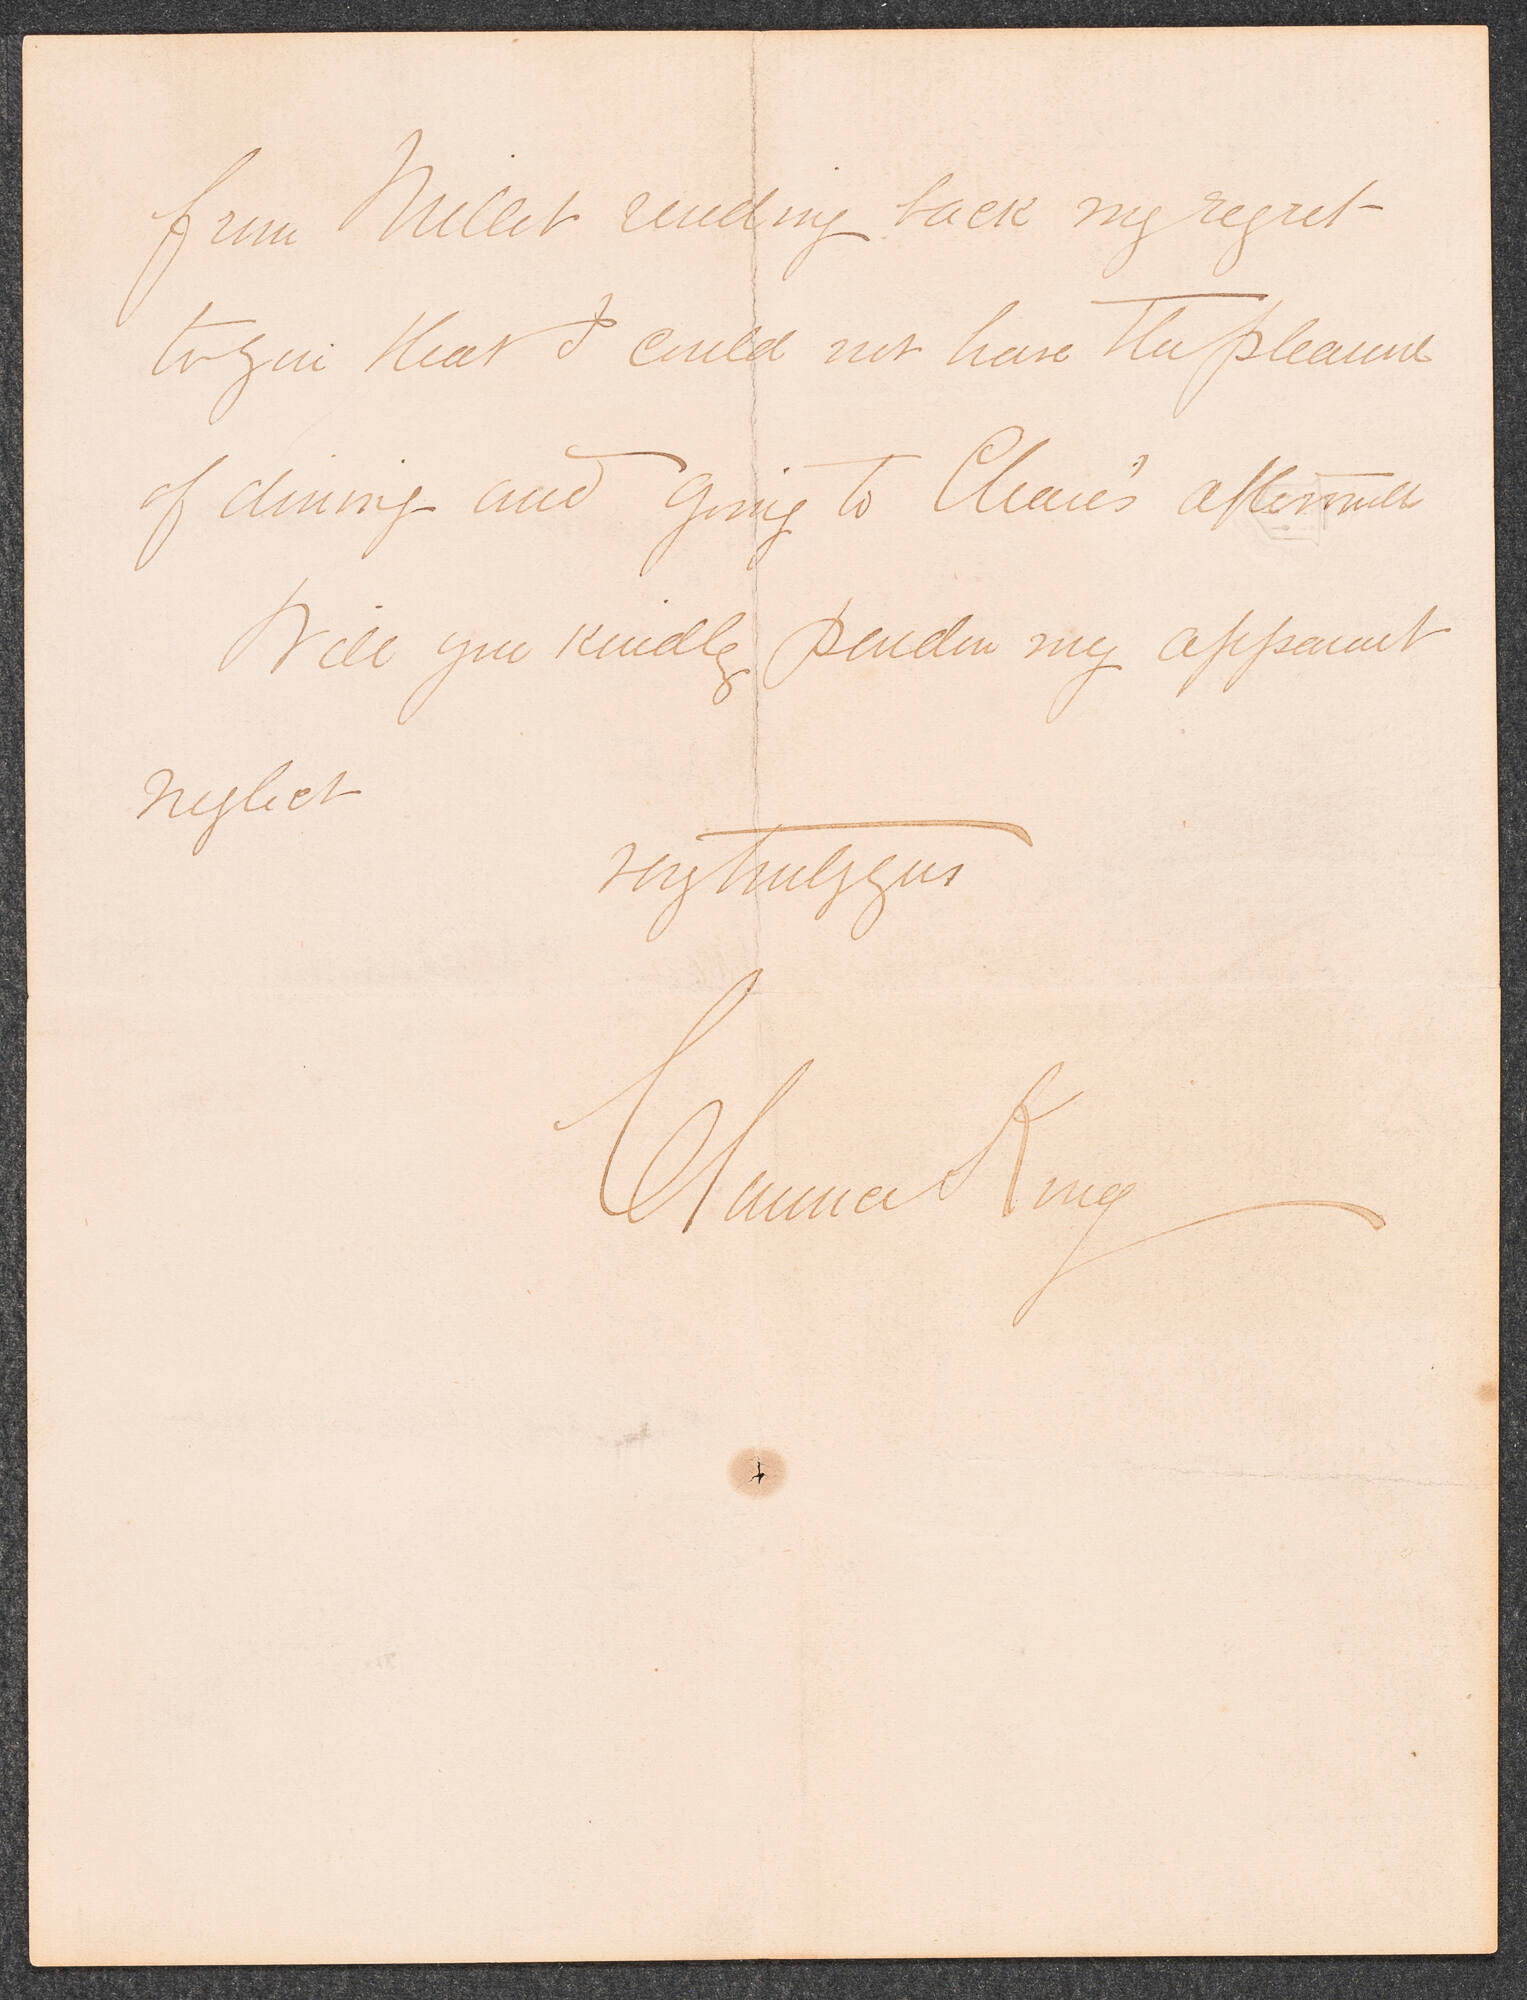 from Millet sending back my regret
to you that I could not have the pleasure
of dining and going to Chase's afterwards
Will you kindly pardon my apparent
neglect
very truly yours
Clarence King